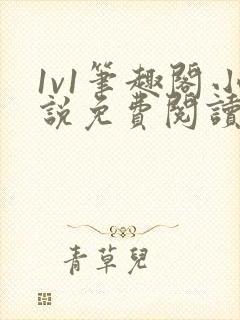 1v1筆趣閣小
說免費閱讀
青草兒